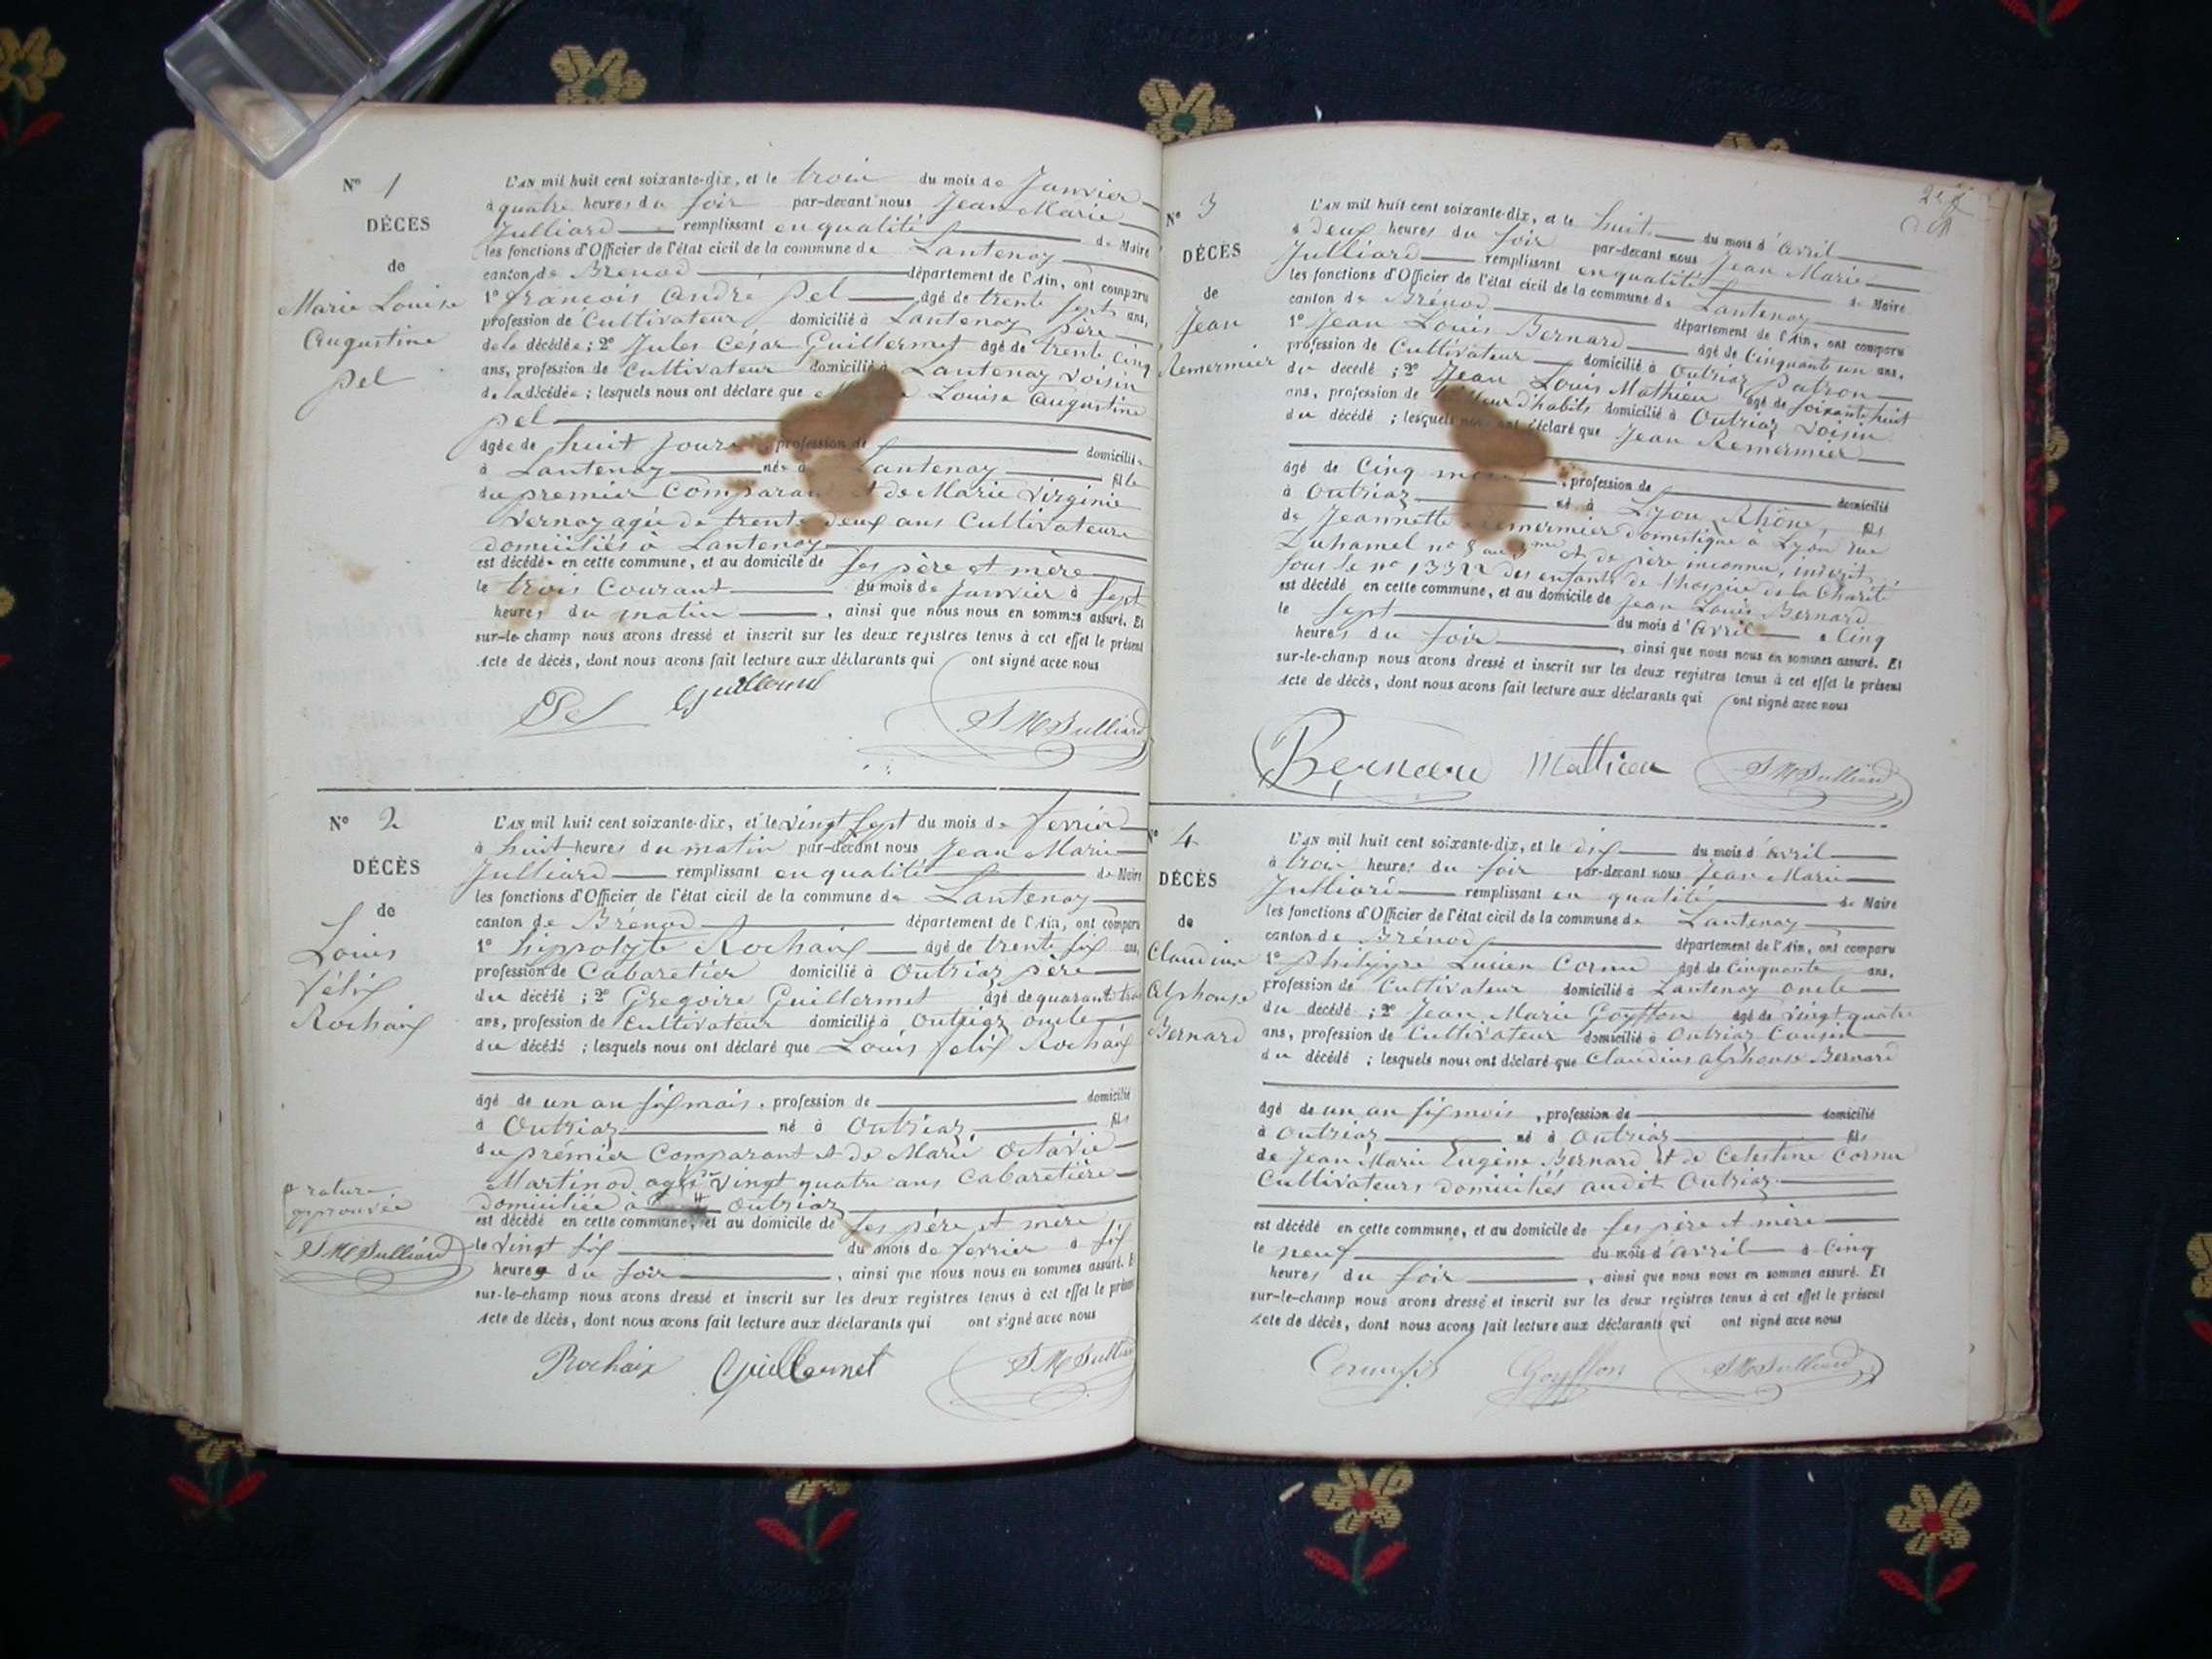 N° 1
DÉCÈS
de
Marie Louise
Augustine
Pel
L'AN mil huit cent soixante-dix, et le trois du mois de Janvier
à quatre heures du soir par-devant nous Jean Marie
Julliard remplissant en qualité de Maire
les fonctions d'Officier de l'état civil de la commune de Lantenay
canton de Brénod département de l'Ain, ont comparu
1° françois André Pel âgé de trente sept ans,
profession de Cultivateur domicilié à Lantenay père
de la décédée ; 2° Jules César Guillermet âgé de trente cinq
ans, profession de Cultivateur domicilié à Lantenay Voisin
de la décédée ; lesquels nous ont déclaré que Louise Augustine
Pel
âgée de huit jours profession de domiciliée
à Lantenay née à Lantenay fille
du premier Comparant et de Marie Virginie
Vernay agée de trente deux ans Cultivateurs
domiciliés à Lantenay
est décédée en cette commune, et au domicile de ses père et mère
le trois Courant du mois de Janvier à sept
heures du matin , ainsi que nous nous en sommes assuré. Et
sur-le-champ nous avons dressé et inscrit sur les deux registres tenus à cet effet le présent
Acte de décès, dont nous avons fait lecture aux déclarants qui ont signé avec nous
Pel Guillermet JM Julliard
N° 2
DÉCÈS
de
Louis
félix
Rochaix
L'AN mil huit cent soixante-dix, et le vingt sept du mois de fevrier
à huit heures du matin par-devant nous Jean Marie
Julliard remplissant en qualité de Maire
les fonctions d'Officier de l'état civil de la commune de Lantenay
canton de Brénod département de l'Ain, ont comparu
1° hippolyte Rochaix âgé de trente six ans,
profession de Cabaretier domicilié à Outriaz père
du décédé ; 2° Gregoire Guillermet âgé de quarante trois
ans, profession de Cultivateur domicilié à Outriaz oncle
du décédé ; lesquels nous ont déclaré que Louis félix Rochaix
âgé de un an six mois , profession de domicilié
à Outriaz né à Outriaz fils
du premier Comparant et de Marie Octavie
Martinod agée vingt quatre ans Cabaretière
domiciliée à Outriaz
rature
approuvée
JM Julliard
est décédé en cette commune, et au domicile de ses père et mère
le vingt six du mois de fevrier à six
heures du soir , ainsi que nous nous en sommes assuré. Et
sur-le-champ nous avons dressé et inscrit sur les deux registres tenus à cet effet le présent
Acte de décès, dont nous avons fait lecture aux déclarants qui ont signé avec nous
Rochaix Guillermet JM Julliard
N° 3
DÉCÈS
de
Jean
Remermier
L'AN mil huit cent soixante-dix, et le huit du mois d'Avril
à deux heures du soir par-devant nous Jean Marie
Julliard remplissant en qualité de Maire
les fonctions d'Officier de l'état civil de la commune de Lantenay
canton de Brénod département de l'Ain, ont comparu
1° Jean Louis Bernard âgé de Cinquante un ans,
profession de Cultivateur domicilié à Outriaz patron
du décédé ; 2° Jean Louis Mathieu âgé de soixante huit
ans, profession de tailleur d'habits domicilié à Outriaz Voisin
du décédé ; lesquels nous ont déclaré que Jean Remermier
âgé de Cinq mois , profession de domicilié
à Outriaz né à Lyon Rhône, fils
de Jeannette Remermier domestique à Lyon rue
Duhamel n° 8 au et de père inconnu, inscrit
sous le n° 1322 des enfants de l'hospice de la Charité
est décédé en cette commune, et au domicile de Jean Louis Bernard
le sept du mois d'Avril à Cinq
heures du soir , ainsi que nous nous en sommes assuré. Et
sur-le-champ nous avons dressé et inscrit sur les deux registres tenus à cet effet le présent
Acte de décès, dont nous avons fait lecture aux déclarants qui ont signé avec nous
Bernard Mathieu JM Julliard
N° 4
DÉCÈS
de
Claudius
Alphonse
Bernard
L'AN mil huit cent soixante-dix, et le dix du mois d'avril
à trois heures du soir par-devant nous Jean Marie
Julliard remplissant en qualité de Maire
les fonctions d'Officier de l'état civil de la commune de Lantenay
canton de Brénod département de l'Ain, ont comparu
1° Philippe Lucien Cornu âgé de Cinquante ans,
profession de Cultivateur domicilié à Lantenay oncle
du décédé ; 2° Jean Marie Goyffon âgé de vingt quatre
ans, profession de Cultivateur domicilié à Outriaz Cousin
du décédé ; lesquels nous ont déclaré que Claudius Alphonse Bernard
âgé de un an six mois , profession de domicilié
à Outriaz né à Outriaz fils
de Jean Marie Eugène Bernard et de Celestine Cornu
Cultivateurs domiciliés audit Outriaz
est décédé en cette commune, et au domicile de ses père et mère
le neuf du mois d'avril à Cinq
heures du soir , ainsi que nous nous en sommes assuré. Et
sur-le-champ nous avons dressé et inscrit sur les deux registres tenus à cet effet le présent
Acte de décès, dont nous avons fait lecture aux déclarants qui ont signé avec nous
Goyffon JM Julliard